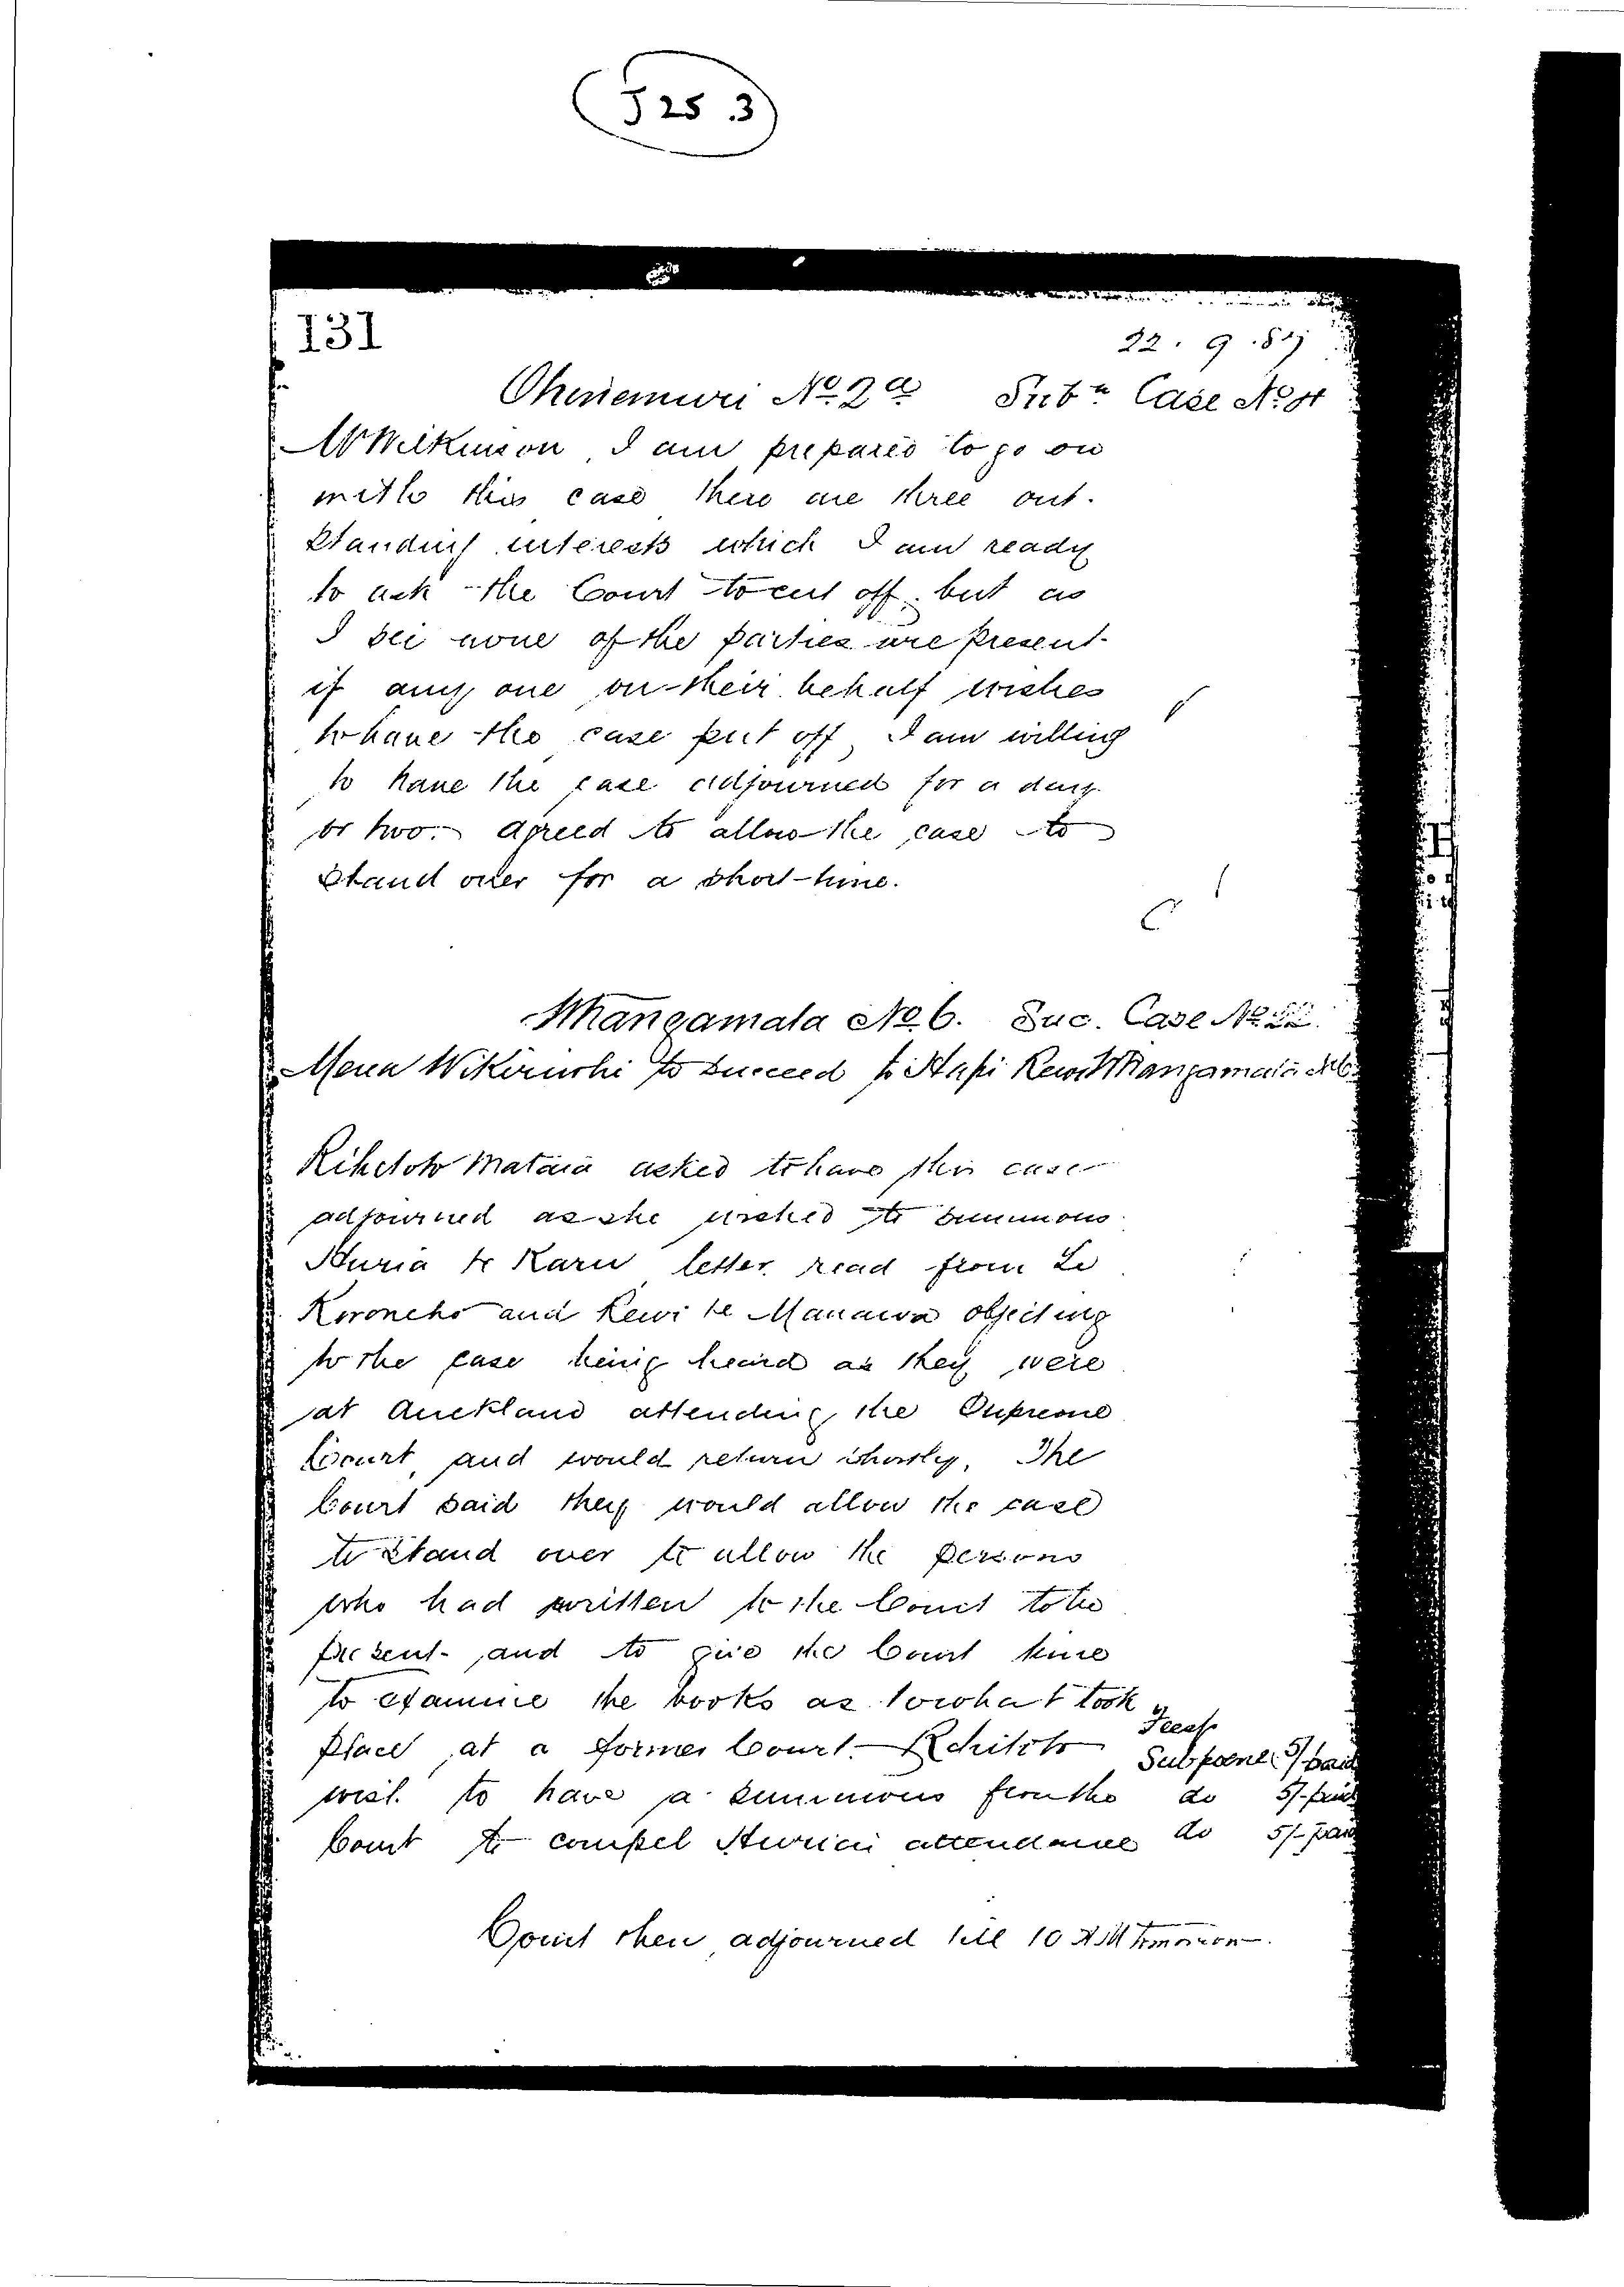 J 25 .3
131
22 . 9 .
Ohinemuri No 2a Subn Case No
Mr Wilkinson, I am prepared to go on
with this case there are three out-
standing interests which I am ready
to ask the Court to cut off, but as
I see none of the parties are present
if any one on their behalf wishes
to have the case put off, I am willing
to have the case adjourned for a day
or two. Agreed to allow the case to
stand over for a short time.
Whangamata No 6. Suc. Case No
Mera to succeed to Hapi Rewi Whangamata No 6
Rihitoto Mataia asked to have this case
adjourned as she wished to summons
Huria te Karu letter read from Te
and Rewi te objecting
to the case being heard as they were
at Auckland attending the Supreme
Court, and would return shortly. The
Court said they would allow the case
to stand over to allow the persons
who had written to the Court to be
present, and to give the Court time
to examine the books as to what took
place at a former Court. Rihitoto
wish to have a summons from the
Court to compel attendance
Fees
Subpoena 5/- paid
do 5/- paid
do 5/- paid
Court then adjourned till 10 AM tomorrow